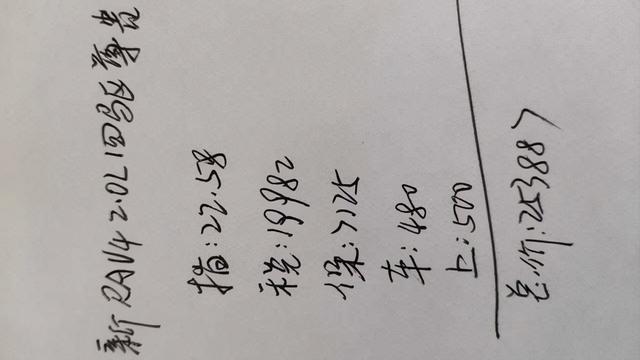 新RAV4 2.0L四驱尊贵
指:22.58
税:19982
保:7125
车:480
上:500
总价:253887